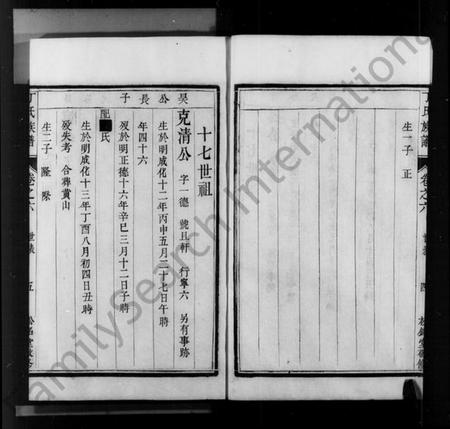 丁氏族譜
卷之六
世表
四
生一子 正
十七世祖
吴公長子
克清公 字一德 號且軒 行寧六 另有事跡
生於明成化十二年丙申五月二十七日午時
歿於明正德十六年辛巳三月十二日子時
年四十六
配 氏
生於明成化十三年丁酉八月初四日丑時
歿失考 合葬黄山
生二子 隆
丁氏族譜
卷之六
世表
五
FamilySearch International